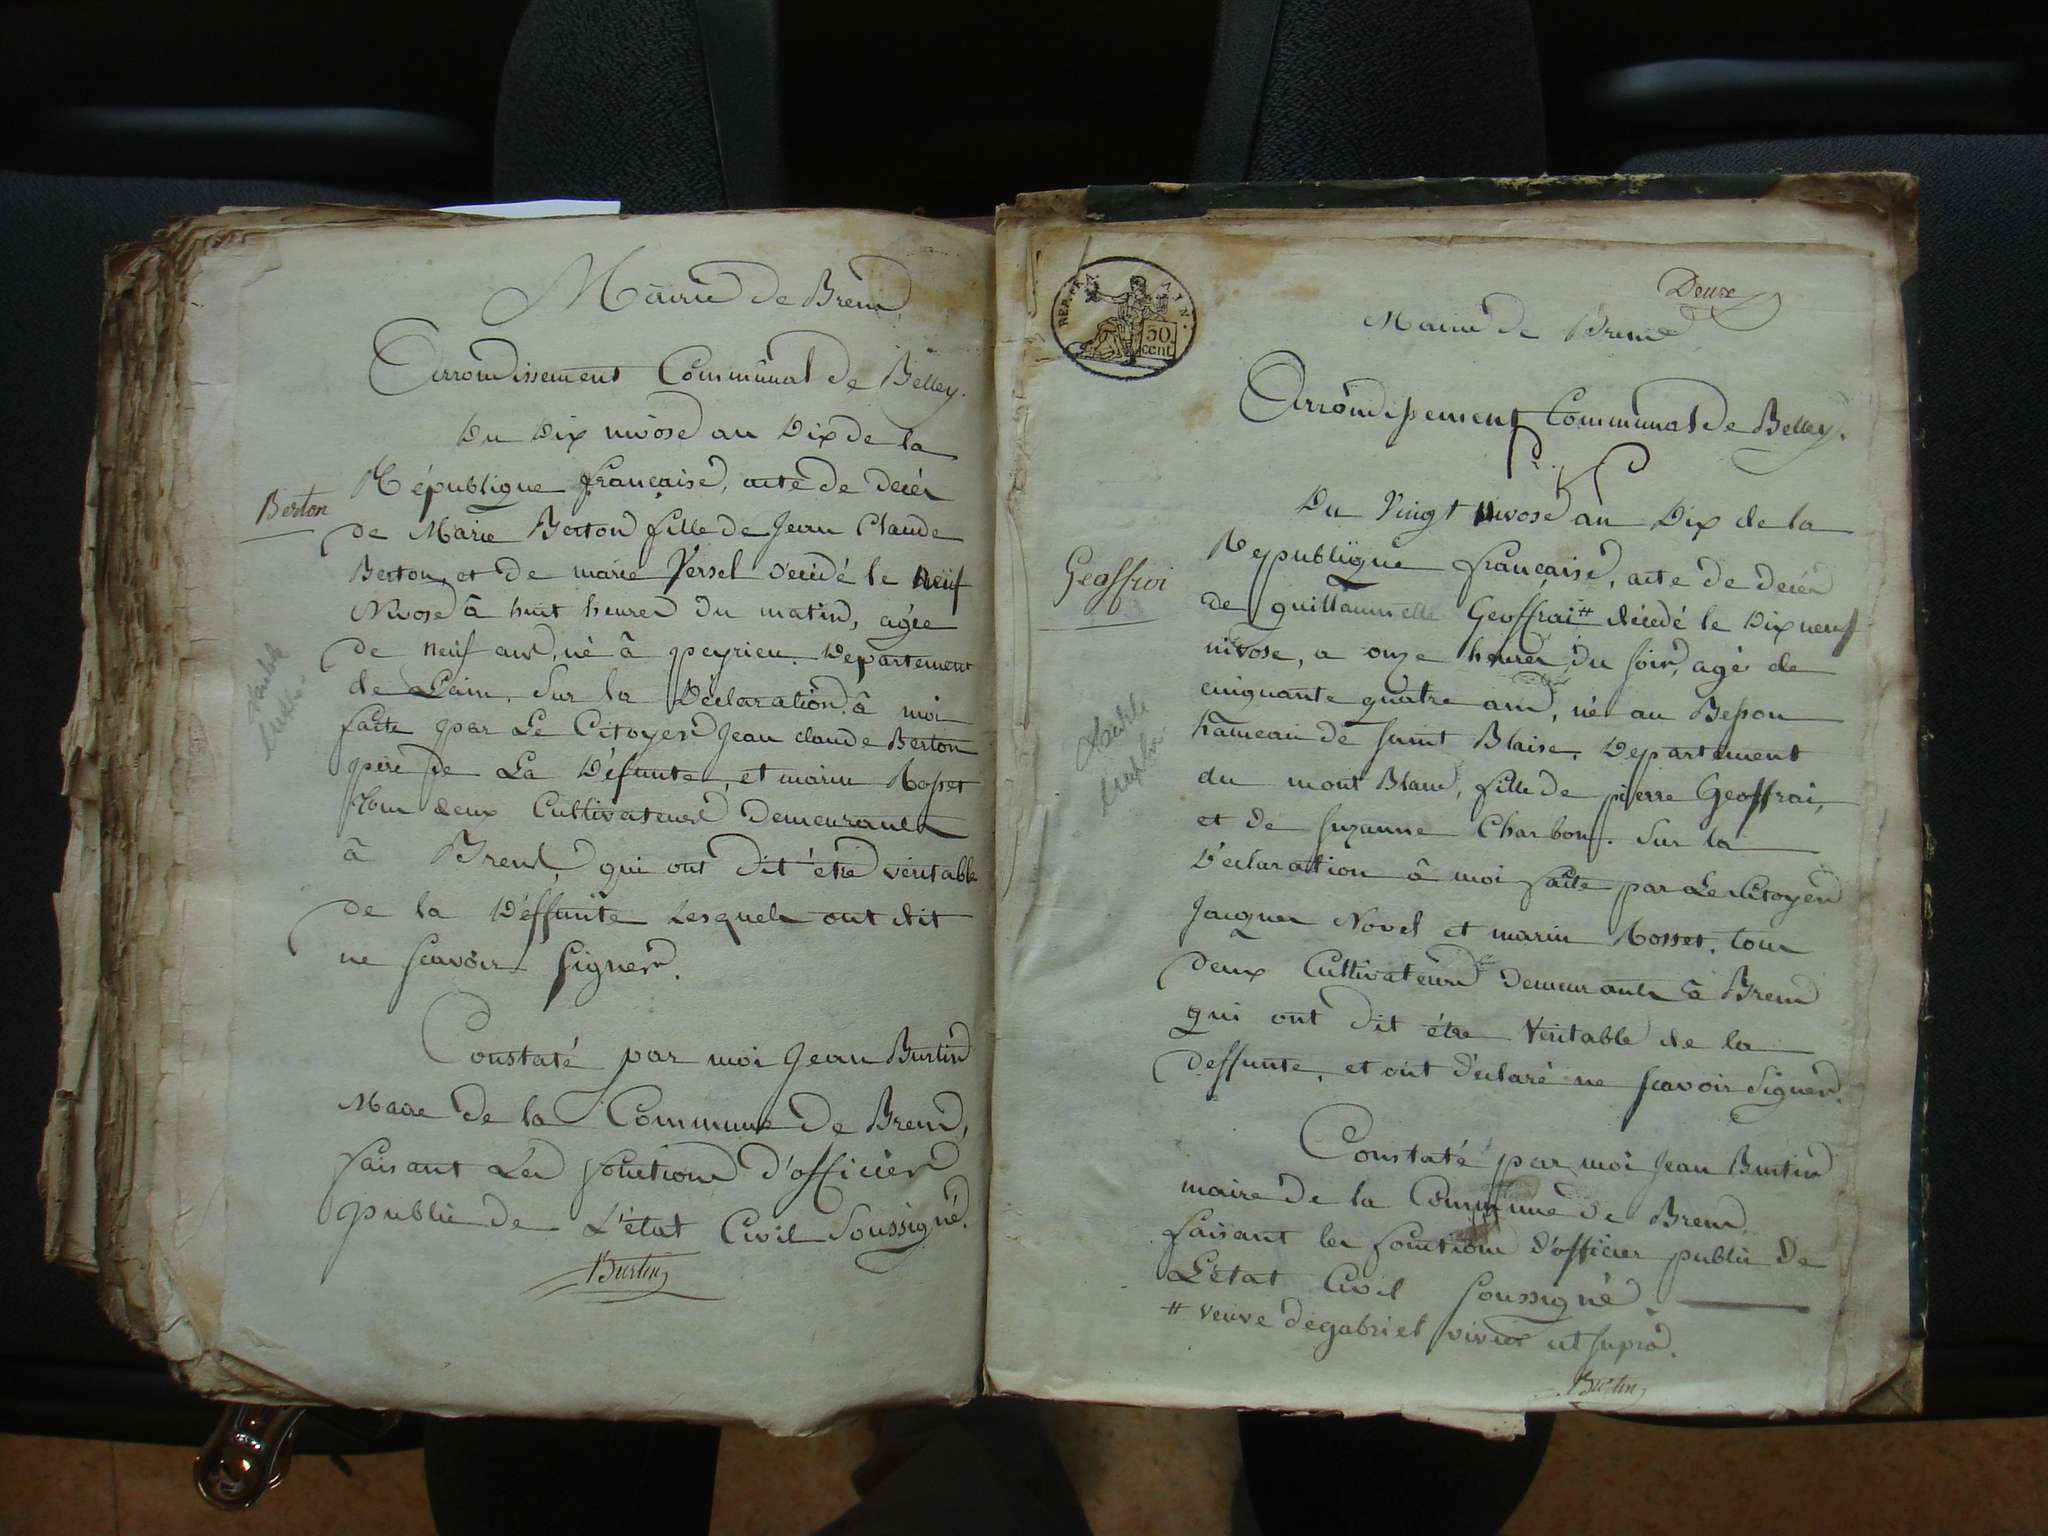 Mairie de Brens
Arrondissement Communal de Belley.
Du Dix nivose an Dix de la
République française, acte de decès
Berton
de Marie Berton fille de Jean Claude
Berton, et de marie Versel décédé le neuf
Nivose à huit heures du matin, agée
de neuf ans, né à peyrieu. Departement
de Lain. Sur la Déclaration à moi
faite par Le Citoyen Jean claude Berton
père de La Défunte, et marin Rosset
tous deux Cultivateurs Demeurants
à Brens, qui ont dit être véritable
de la Déffunte Lesquels ont dit
ne scavoir signer.
Constaté par moi Jean Burtin
Maire de la Commune de Brens,
faisant Les fonctions d'officier
public de L'état Civil Soussigné.
Burtin
REP. FRA
AIN.
50
cent
Deux
Mairie de Brens
Arrondissement Communal de Belley.
Du Vingt nivose an Dix de la
Republique française, acte de decès
Geoffroi
de guillaumette Geoffrai # décedé le Dix neuf
nivose, a onze heures du soir, agé de
cinquante quatre ans, né au Besson
hameau de saint Blaise, Departement
du mont Blanc, fille de pierre Geoffrai,
et de suzanne Charbon. Sur la
Déclaration à moi faite par Le Citoyen
Jacques Novel et marin Rosset. tous
deux Cultivateurs Demeurants à Brens
qui ont dit être Veritable de la
deffunte, et ont déclaré ne scavoir Signer.
Constaté par moi Jean Burtin
maire de la Commune de Brens
faisant les fonctions d'officier public de
L'état Civil soussigné.
# veuve de gabriel ut supra.
Burtin